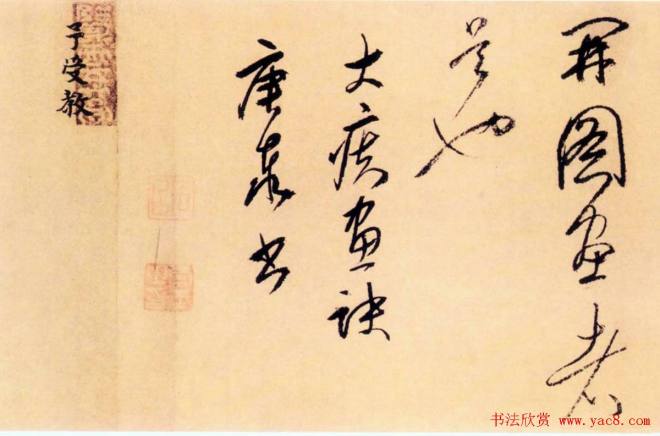 图画者
是也
大痴画诀
书
予受教
书法欣赏
www.yac8.com